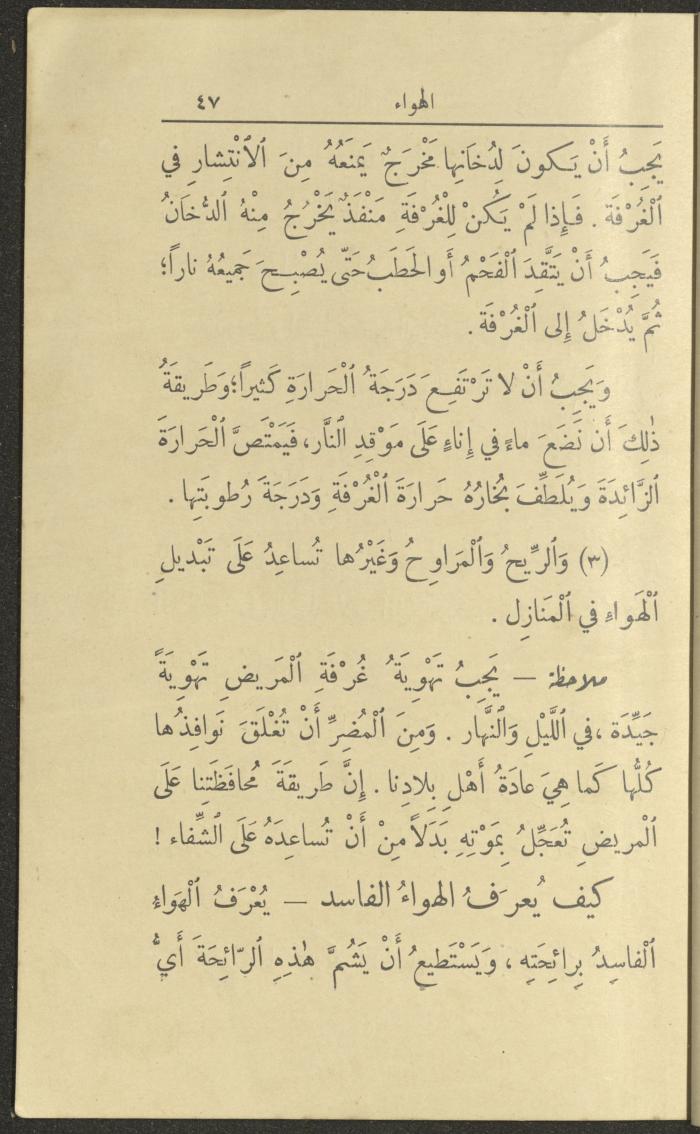 الهواء ٤٧
يَجِبُ أَنْ يَكونَ لِدُخَانِها مَخْرَجٌ يَمنَعُهُ مِنَ ٱلاَنْتِشارِ في
ٱلْغُرْفَة . فَإِذا لَمْ يَكُنْ لِلْغُرْفَةِ مَنْفَذٌ يَخْرُجُ مِنْهُ ٱلدُّخانُ
فَيَجِبُ أَنْ يَتَّقِدَ ٱلْفَحْمُ أَو الحَطَبُ حَتّى يُصْبِحَ جَميعُهُ ناراً؛
ثُمَّ يُدْخَلُ إِلى ٱلْغُرْفَة .
وَيَجِبُ أَنْ لا تَرْتَفِعَ دَرَجَةُ ٱلْحَرارَةِ كَثيراً؛ وَطَريقَةُ
ذٰلِكَ أَن نَضَعَ ماءً في إِناءٍ عَلَى مَوْقِدِ ٱلنَّار، فَيَمْتَصَّ ٱلْحَرارَةَ
ٱلزَّائِدَةَ وَيُلَطِّفَ بُخارُهُ حَرارَةَ ٱلْغُرْفَةِ وَدَرَجَةَ رُطوبَتِها .
(٣) وَٱلرِّيحُ وَٱلْمَراوِحُ وَغَيْرُها تُساعِدُ عَلَى تَبْديلِ
ٱلْهَواءِ في ٱلْمَنازِل .
ملاحظة — يَجِبُ تَهْوِيَةُ غُرْفَةِ ٱلْمَريضِ تَهْوِيَةً
جَيِّدَة ، في ٱللَّيْلِ وَٱلنَّهار . وَمِنَ ٱلْمُضِرِّ أَنْ تُغْلَقَ نَوافِذُها
كُلُّها كَما هِيَ عادَةُ أَهْلِ بِلادِنا . إِنَّ طَريقَةَ مُحافَظَتِنا عَلَى
ٱلْمريضِ تُعَجِّلُ بِمَوْتِهِ بَدَلاً مِنْ أَنْ تُساعِدَهُ عَلَى ٱلشِّفاء !
كيف يُعرَفُ الهواءُ الفاسد — يُعْرَفُ ٱلْهَواءُ
ٱلْفاسِدُ بِرائِحَتِه ، وَيَسْتَطيعُ أَنْ يَشُمَّ هٰذِهِ ٱلرّائِحَةَ أَيُّ